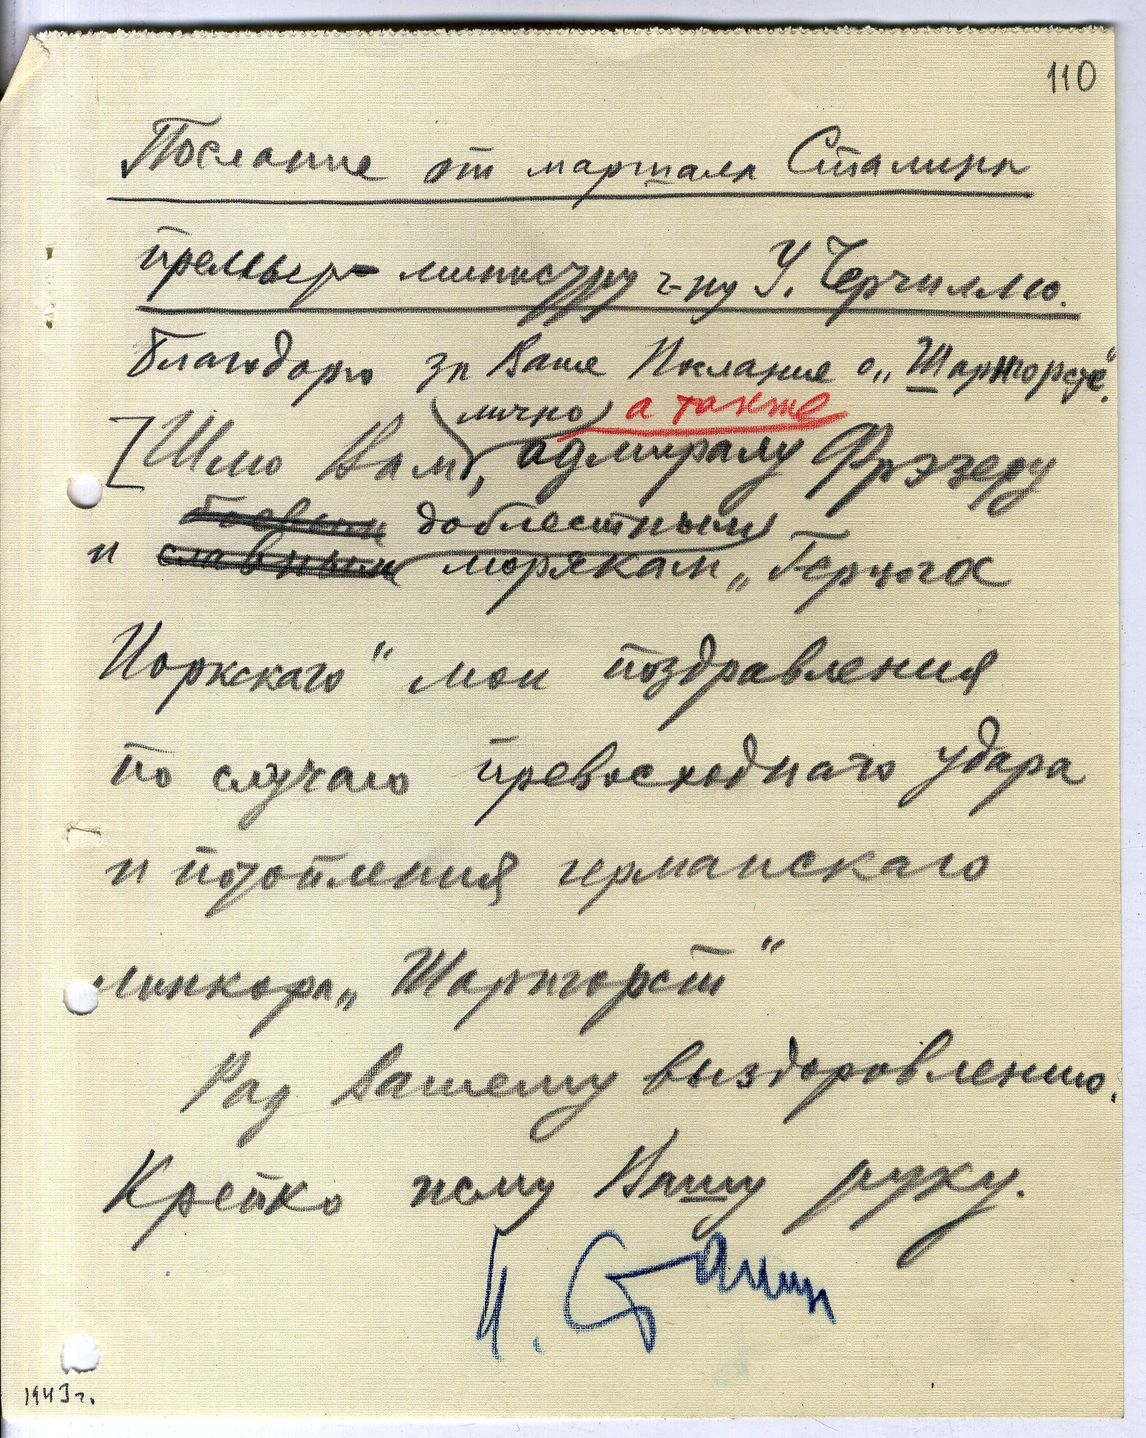 110
Послание от маршала Сталина
премьер-министру г-ну У. Черчиллю.
Благодарю за Ваше послание о „Шарнгорсте“.
лично а также
[Шлю Вам, адмиралу Фрэзеру
боевым доблестным
и славным морякам „Герцога
Йоркского“ мои поздравления
по случаю превосходного удара
и потопления германского
линкора „Шарнгорст“
Рад Вашему выздоровлению.
Крепко жму Вашу руку.
И. Сталин
1943 г.